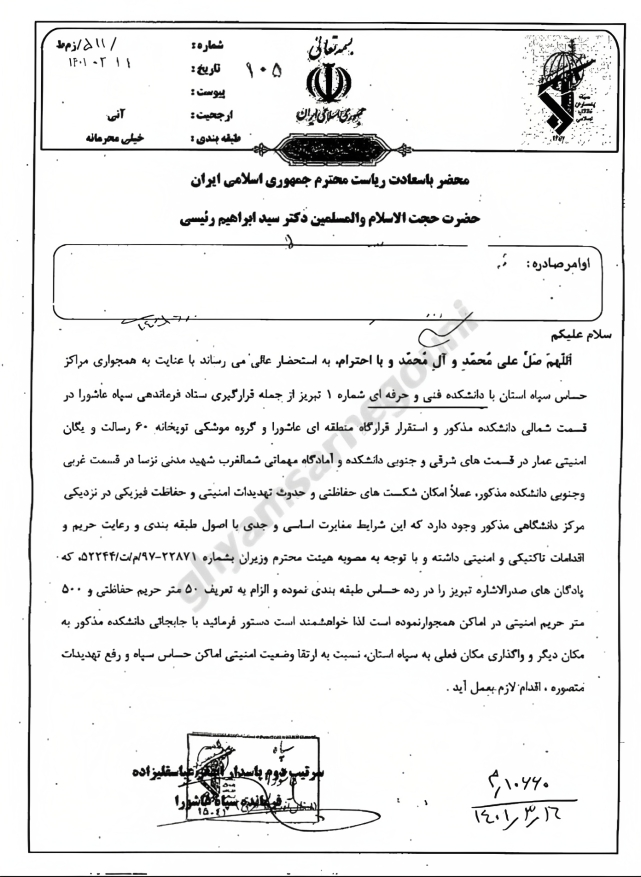 بسمه تعالی
جمهوری اسلامی ایران
شماره : /۵۱۱/زم‌ط
تاریخ : ۱۴۰۱-۲ ۱۱
۱۰۵
پیوست :
ارجحیت : آنی
طبقه بندی : خیلی محرمانه
محضر باسعادت ریاست محترم جمهوری اسلامی ایران
حضرت حجت الاسلام والمسلمین دکتر سید ابراهیم رئیسی
اوامر صادره :
سلام علیکم
اَللّهمَ صَلِّ علی مُحمَّدٍ و آلِ مُحَمَّد و با احترام، به استحضار عالی می رساند با عنایت به همجواری مراکز
حساس سپاه استان با دانشکده فنی و حرفه ای شماره ۱ تبریز از جمله قرارگیری ستاد فرماندهی سپاه عاشورا در
قسمت شمالی دانشکده مذکور و استقرار قرارگاه منطقه ای عاشورا و گروه موشکی توپخانه ۶۰ رسالت و یگان
امنیتی عمار در قسمت های شرقی و جنوبی دانشکده و آمادگاه مهماتی شمالغرب شهید مدنی نزسا در قسمت غربی
وجنوبی دانشکده مذکور، عملاً امکان شکست های حفاظتی و حدوث تهدیدات امنیتی و حفاظت فیزیکی در نزدیکی
مرکز دانشگاهی مذکور وجود دارد که این شرایط مغایرت اساسی و جدی با اصول طبقه بندی و رعایت حریم و
اقدامات تاکتیکی و امنیتی داشته و با توجه به مصوبه هیئت محترم وزیران بشماره ۲۲۸۷۱-۹۷/م/ت/۵۲۲۴۴، که
پادگان های صدرالاشاره تبریز را در رده حساس طبقه بندی نموده و الزام به تعریف ۵۰ متر حریم حفاظتی و ۵۰۰
متر حریم امنیتی در اماکن همجوارنموده است لذا خواهشمند است دستور فرمائید با جابجائی دانشکده مذکور به
مکان دیگر و واگذاری مکان فعلی به سپاه استان، نسبت به ارتقا وضعیت امنیتی اماکن حساس سپاه و رفع تهدیدات
متصوره ، اقدام لازم بعمل آید .
سرتیپ دوم پاسدار اصغر عباسقلیزاده
فرمانده سپاه عاشورا
۱۰۶۶۰
۱۴۰۱/۳/۱۶
ghyamsarnegouni